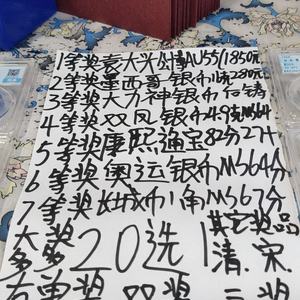 1等奖袁大头村AU55/1850元
2等奖墨西哥银币1枚280元
3等奖大力神银币仿铸
4等奖双凤银币4.9克MS64
5等奖康熙通宝82分27+
6等奖奥运银币MS64分
7等奖长城币1角MS67分
大多奖20选1
其它奖品
清.宋.